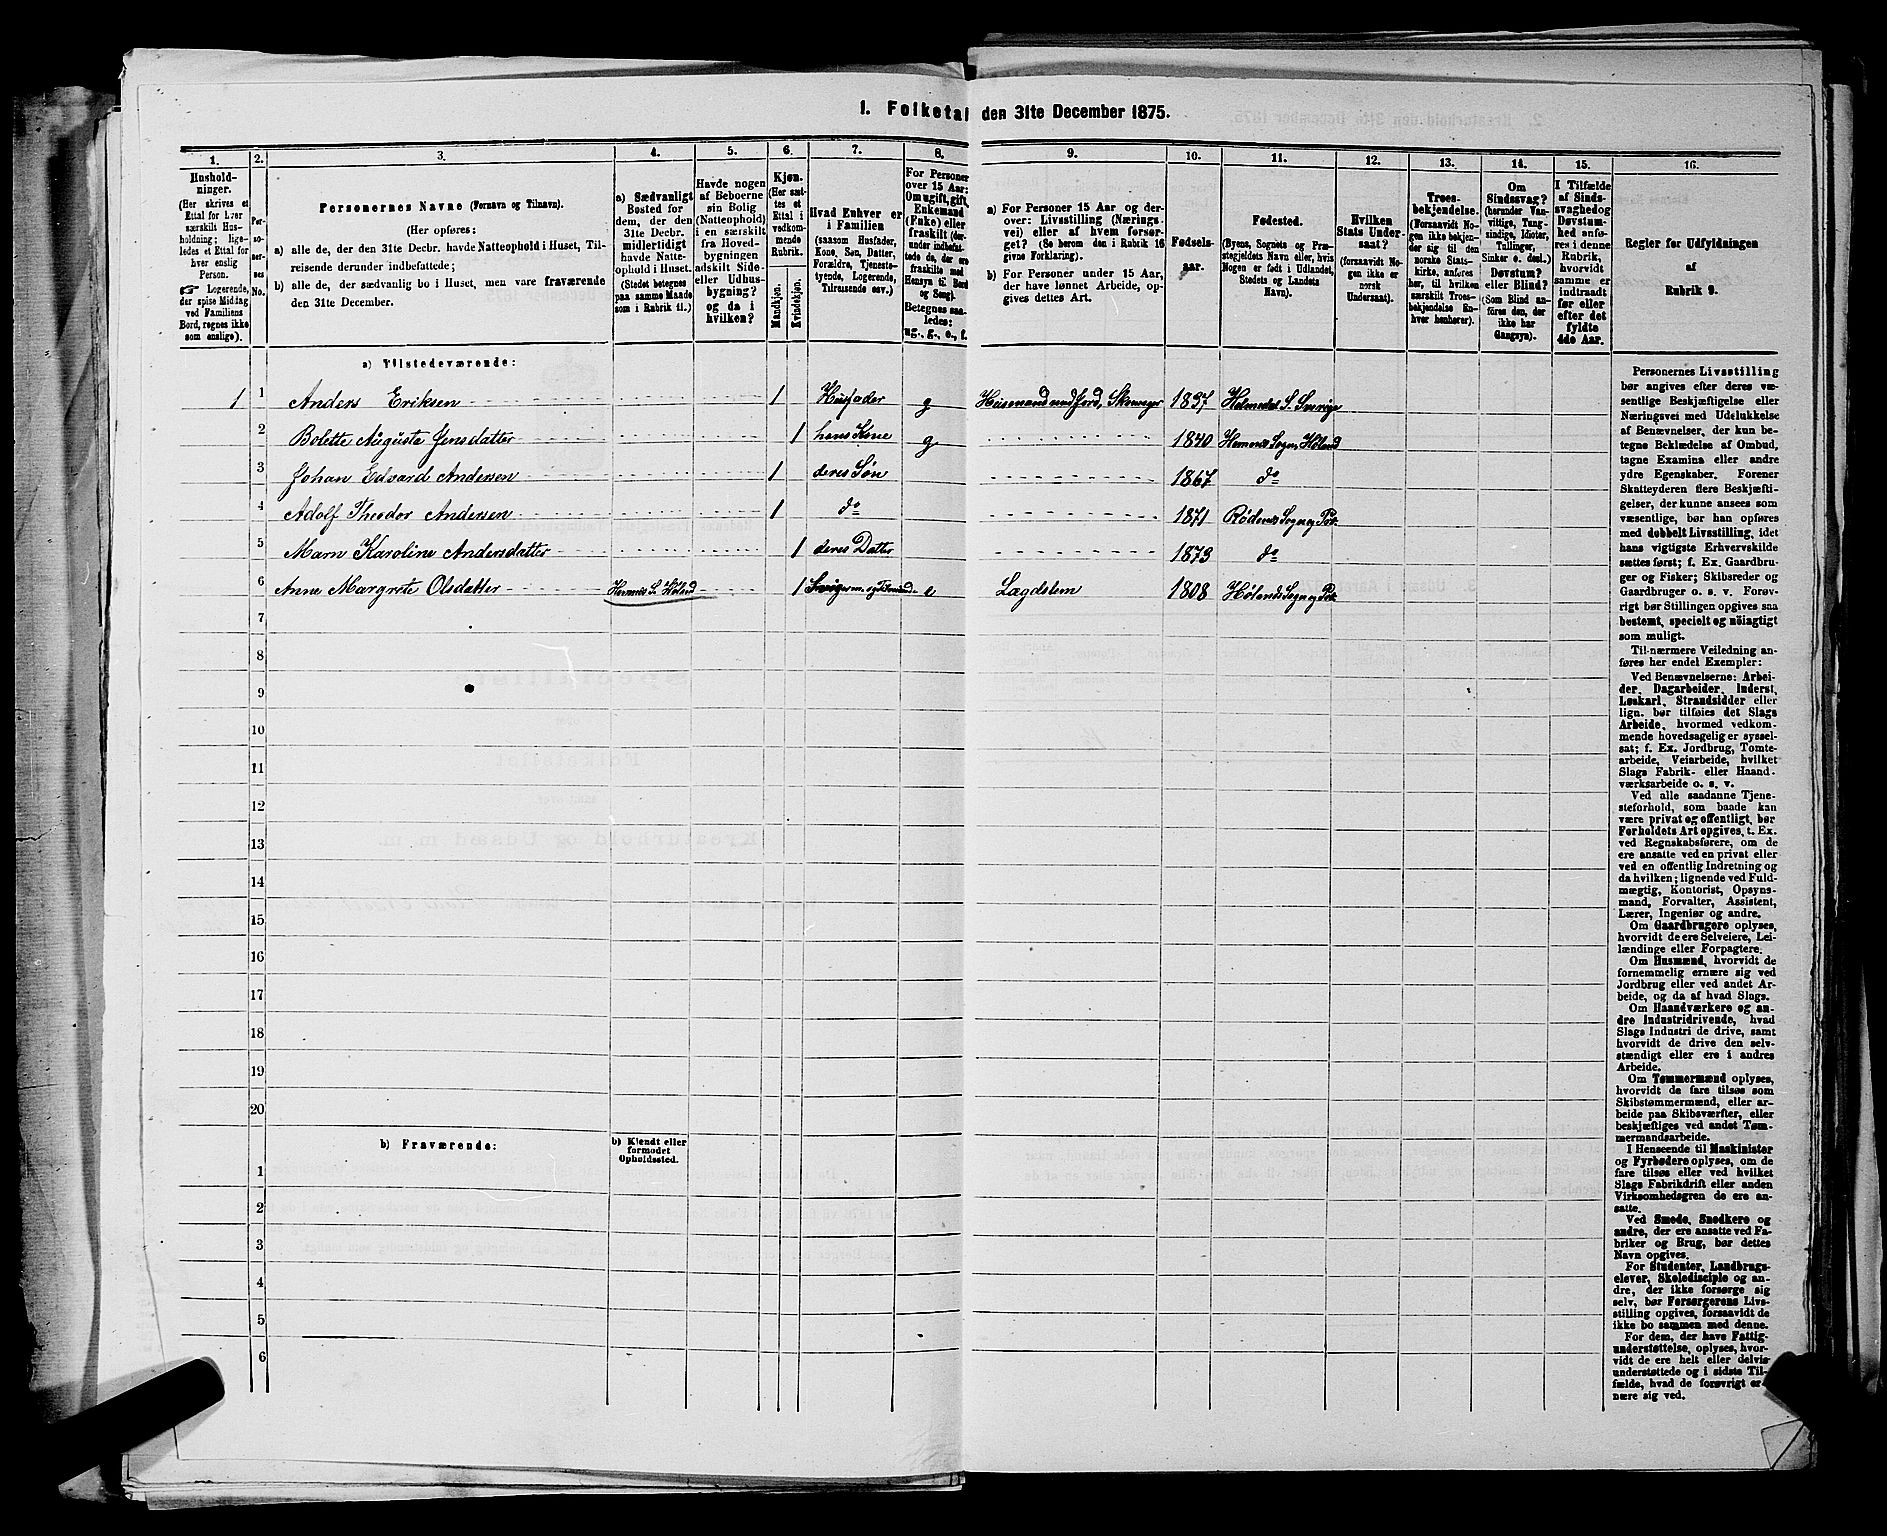 1. Folketal den 31te December 1875.
1.
Husholdninger.
(Her skrives et
Ettal for hver
særskilt Husholdning;
ligeledes et Ettal for
hver enslig
Person.
☞ Logerende,
der spise Middag
ved Familiens
Bord, regnes ikke
som enslige).
2.
Personernes No.
3.
Personernes Navne (Fornavn og Tilnavn).
(Her opføres:
a) alle de, der den 31te Decbr. havde Natteophold i Huset, Tilreisende derunder indbefattede;
b) alle de, der sædvanlig bo i Huset, men vare fraværende
den 31te December.
4.
a) Sædvanligt
Bosted for
dem, der den
31te Decbr.
midlertidigt
havde Natteophold i Huset.
(Stedet betegnes
paa samme Maade
som i Rubrik 11.)
5.
Havde nogen
af Beboerne
sin Bolig
(Natteophold)
i en særskilt
fra Hovedbygningen
adskilt Side-
eller Udhusbygning?
og da i
hvilken?
6.
Kjøn.
(Her sættes et
Ettal i
vedkommende
Rubrik.
Mandkjøn.
Kvindekjøn.
7.
Hvad Enhver er
i Familien
(saasom Husfader,
Kone, Søn, Datter,
Forældre, Tjenestetyende, Logerende,
Tilreisende osv.)
8.
For Personer
over 15 Aar:
Om ugift, gift,
Enkemand
(Enke) eller
fraskilt (derunder indbefattede de, der ere
fraskilte med
Hensyn til Bord
og Seng).
Betegnes saaledes:
ug., g., e., f.
9.
a) For Personer 15 Aar og derover: Livsstilling (Næringsvei) eller af hvem forsørget? (Se herom den i Rubrik 16
givne Forklaring).
b) For Personer under 15 Aar,
der have lønnet Arbeide, opgives dettes Art.
10.
Fødselsaar.
11.
Fødested.
(Byens, Sognets og Præstegjeldets Navn, eller, hvis
Nogen er født i Udlandet,
Stedets og Landets
Navn).
12.
Hvilken
Stats Undersaat?
(foraavidt Nogen ikke er
norsk
Undersaat).
13.
Troesbekjendelse.
(Foraavidt Nogen ikke bekjender sig til den
norske Statskirke, anføres
her, til hvilken
særskilt Troesbekjendelse Enhver henhører).
14.
Om
Sindssvag?
(herunder Vanvittige, Tungsindige, Idioter,
Tullinger,
Sinker o. desl.)
Døvstum?
eller Blind?
(Som Blind anføres den, der
ikke har
Gangsyn).
15.
I Tilfælde
af Sindssvaghed og
Døvstumhed anføres i denne
Rubrik,
hvorvidt
samme er
indtraadt
før eller
efter det
fyldte
4de Aar.
16.
Regler for Udfyldningen
af
Rubrik 9.
a) Tilstedeværende:
1 1 Anders Eriksen 1 Husfader g Huusmand med Jord, Skomager 1837 Holmedals S. Sverige
2 Bolette Auguste Jensdatter 1 hans Kone g 1840 Hemnes Sogn, Høland
3 Johan Edvard Andersen 1 deres Søn 1867 do
4 Adolf Theodor Andersen 1 do 1871 Rødenes Sogn og Pr.
5 Marn Karoline Andersdatter 1 deres Datter 1873 do
6 Anne Margrete Olsdatter Hemnes S. Høland 1 e Lægdslem 1808 Hølands Sogn og Pr.
7
8
9
10
11
12
13
14
15
16
17
18
19
20
b) Fraværende:
b) Kjendt eller
formodet
Opholdssted.
1
2
3
4
5
6
Personernes Livsstilling
bør angives efter deres væsentlige Beskjæftigelse eller
Næringsvei med Udelukkelse
af Benævnelser, der kun betegne Beklædelse af Ombud,
tagne Examina eller andre
ydre Egenskaber. Forener
Skatteyderen flere Beskjæftigelser, der kunne ansees som
væsentlige, bør han opføres
med dobbelt Livsstilling, idet
hans vigtigste Erhvervskilde
sættes først; f. Ex. Gaardbruger og Fisker; Skibsreder og
Gaardbruger o. s. v. Forøvrigt bør Stillingen opgives saa
bestemt, specielt og nöiagtigt
som muligt.
Til nærmere Veiledning anføres her endel Exempler:
Ved Benævnelserne: Arbeider, Dagarbeider, Inderst,
Løskarl, Strandsidder eller
lign. bør tilføies det Slags
Arbeide, hvormed vedkommende hovedsagelig er sysselsat; f. Ex. Jordbrug, Tomtearbeide, Veiarbeide, hvilket
Slags Fabrik- eller Haandværksarbeide o. s. v.
Ved alle saadanne Tjenesteforhold, som baade kan
være privat og offentligt, bør
Forholdets Art opgives, t. Ex.
ved Regnskabsførere, om de
ere ansatte ved en privat eller
ved en offentlig Indretning og
da hvilken; lignende ved Fuldmægtig, Kontorist, Opsynsmand, Forvalter, Assistent,
Lærer, Ingeniør og andre.
Om Gaardbrugere oplyses,
hvorvidt de ere Selveiere, Leilændinge eller Forpagtere.
Om Husmænd, hvorvidt de
fornemmelig ernære sig ved
Jordbrug eller ved andet Arbeide, og da af hvad Slags.
Om Haandværkere og andre Industridrivende, hvad
Slags Industri de drive, samt
hvorvidt de drive den selvstændigt eller ere i andres
Arbeide.
Om Tømmermænd oplyses,
hvorvidt de fare tilsøs som
Skibstømmermænd, eller arbeide paa Skibsværfter, eller
beskjæftiges ved andet Tømmermandsarbeide.
I Henseende til Maskinister
og Fyrbødere oplyses, om de
fare tilsøs eller ved hvilket
Slags Fabrikdrift eller anden
Virksomhedsgren de ere ansatte.
Ved Smede, Snedkere og
andre, der ere ansatte ved Fabriker og Brug, bør dettes
Navn opgives.
For Studenter, Landbrugselever, Skoledisciple og andre, der ikke forsørge sig
selv, bør Forsørgerens Livsstilling opgives, forsaavidt de
ikke bo sammen med denne.
For dem, der have Fattigunderstøttelse, oplyses, hvorvidt de ere helt eller delvis
understøttede og i sidste Tilfælde, hvad de forøvrigt ernære sig ved.